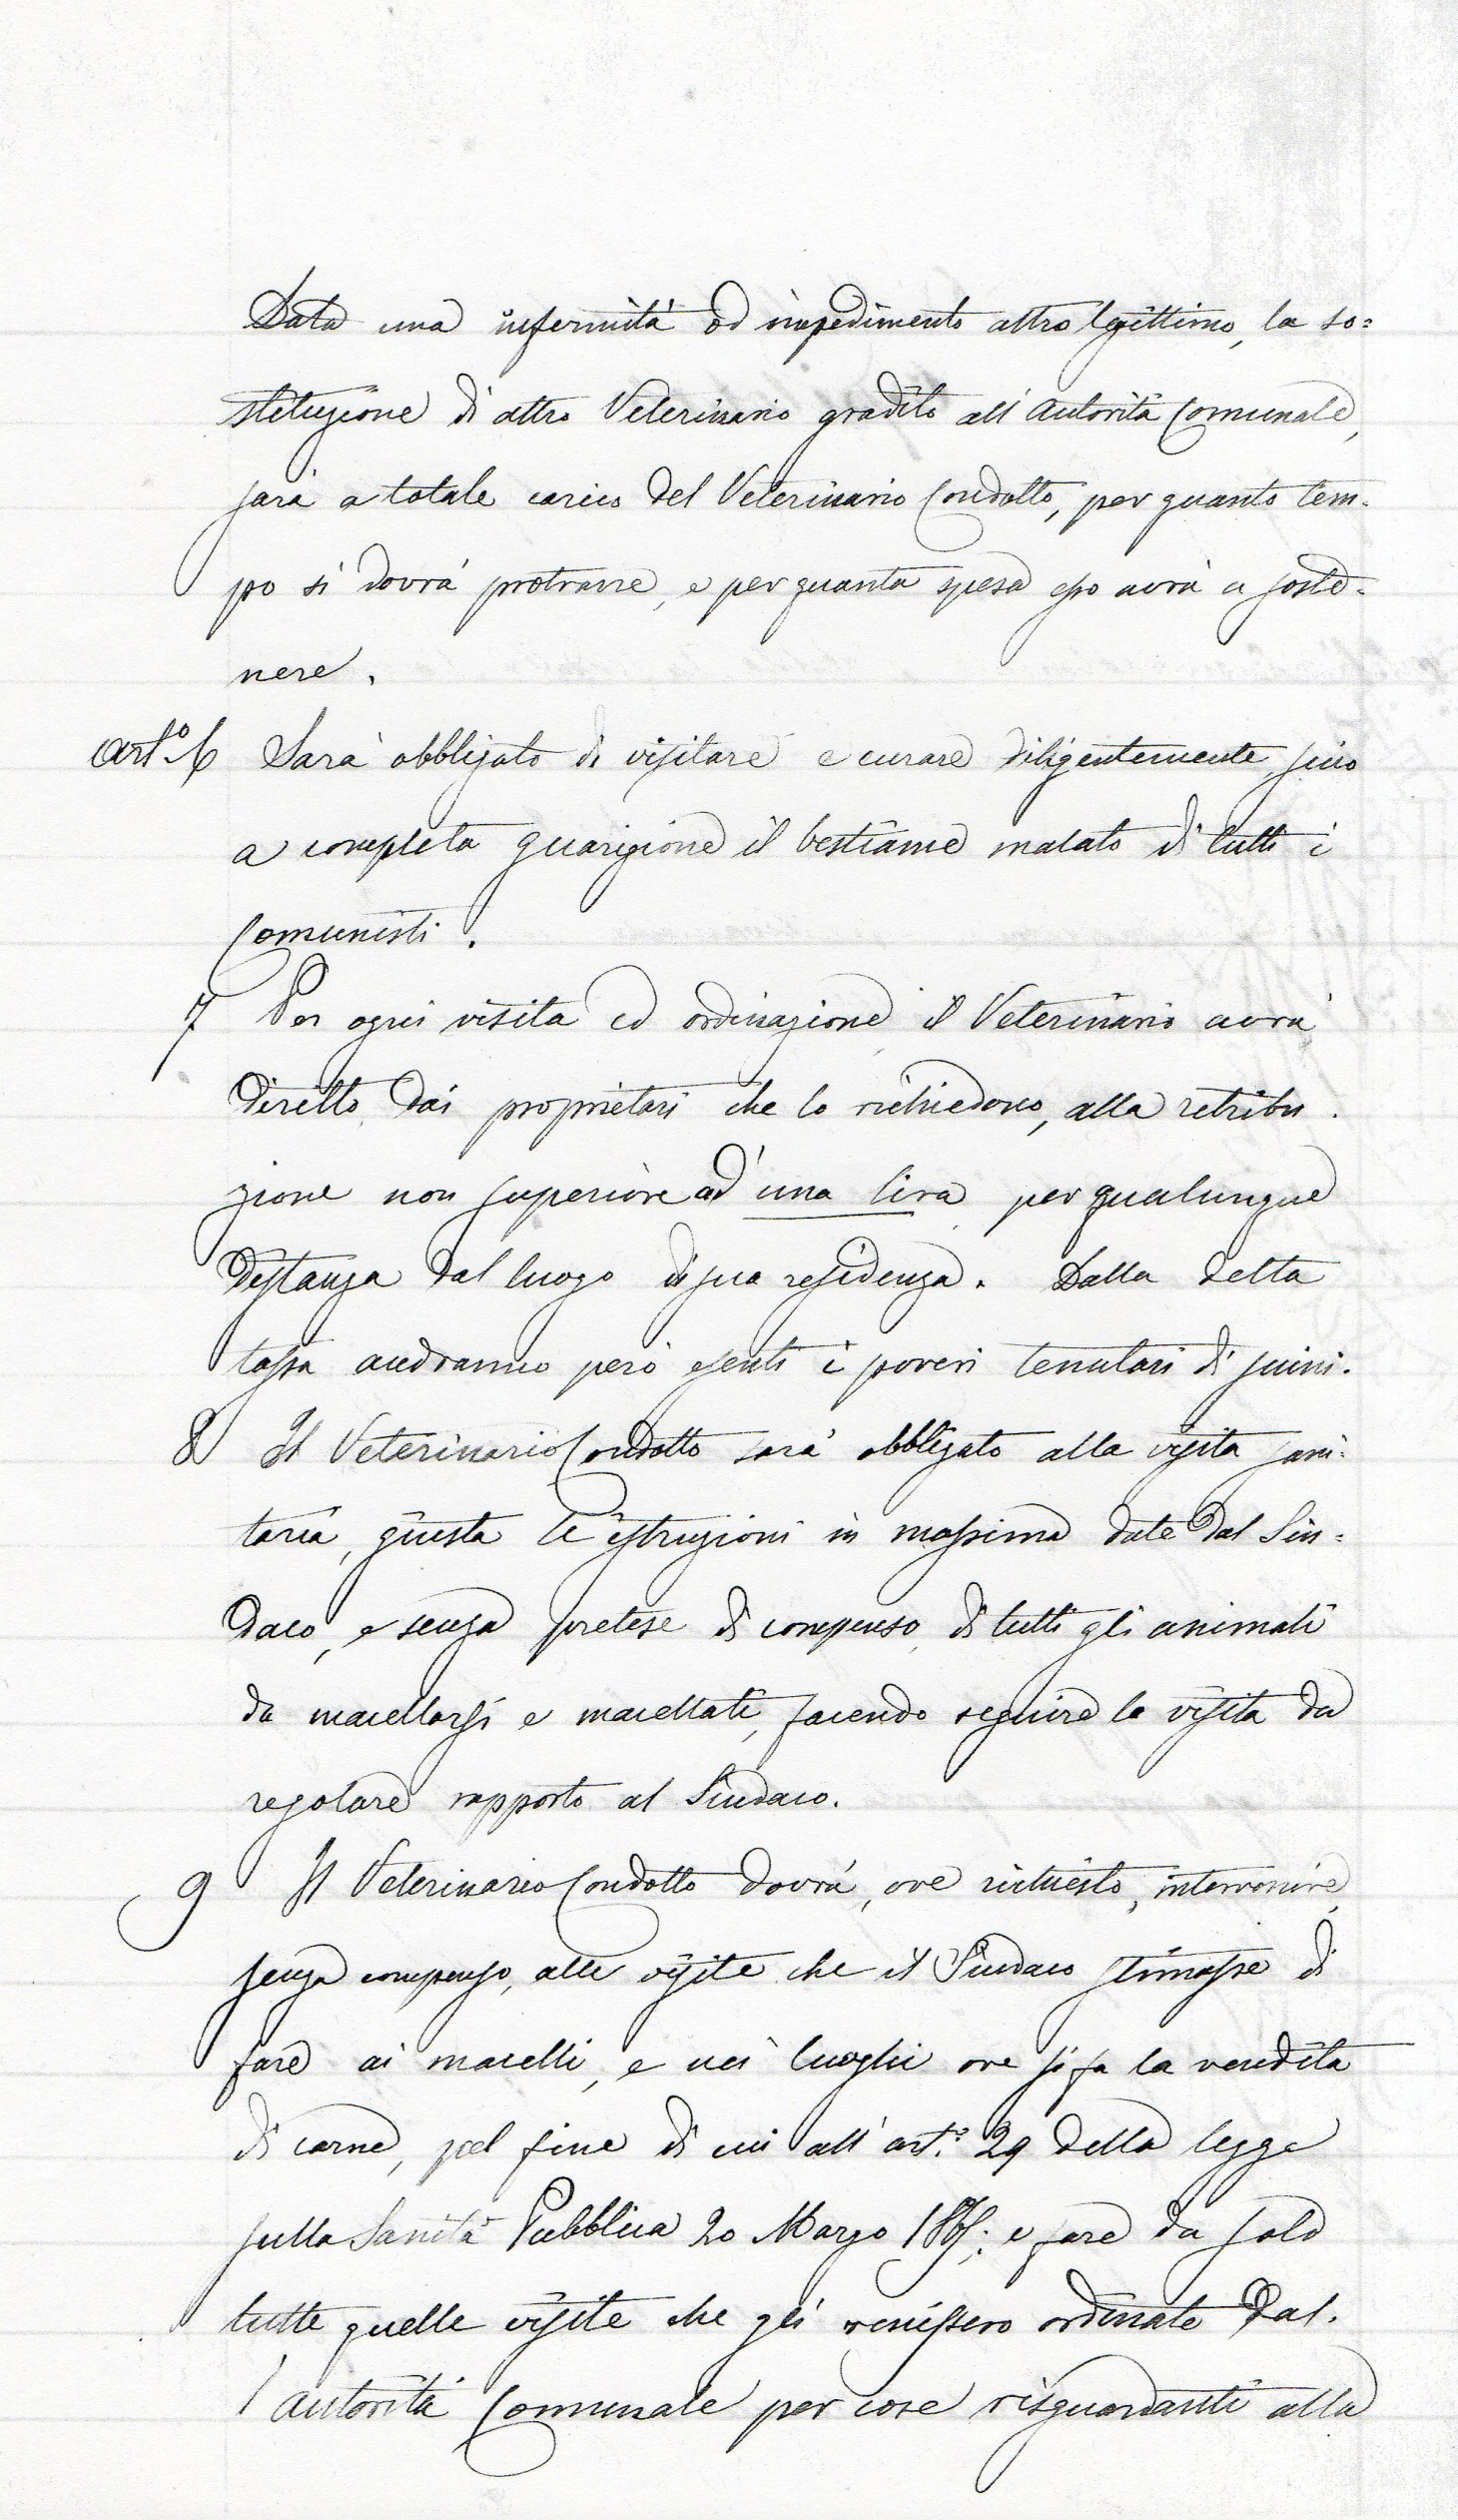 Data una infermità od impedimento altro legittimo, la so=
stituzione di altro Veterinario gradito all'Autorità Comunale,
sarà a totale carico del Veterinario Condotto, per quanto tem-
po si dovrà protrarre, e per quanta spesa esso avrà a soste-
nere.
Art.º 6 Sarà obbligato di visitare e curare diligentemente, sino
a completa guarigione il bestiame malato di tutti i
Comunisti.
7 Per ogni visita ed ordinazione il Veterinario avrà
diritto dai proprietari che lo richiedono, alla retribu-
zione non superiore ad una lira per qualunque
distanza dal luogo di sua residenza. Dalla detta
tassa andranno però esenti i poveri tenutari di suini.
8 Il Veterinario Condotto sarà obbligato alla visita sani-
taria, giusta le istruzioni in massima date dal Sin=
daco, e senza pretese di compenso, di tutti gli animali
da macellarsi e macellati, facendo seguire la visita da
regolare rapporto al Sindaco.
9 Il Veterinario Condotto dovrà, ove richiesto, intervenire,
senza compenso, alle visite che il Sindaco stimasse di
fare ai macelli, e nei luoghi ove si fa la vendita
di carne, pel fine di cui all'art.º 29 della legge
sulla Sanità Pubblica 20 Marzo 1865; e fare da solo
tutte quelle visite che gli venissero ordinate dal-
l'autorità Comunale per cose risguardanti alla